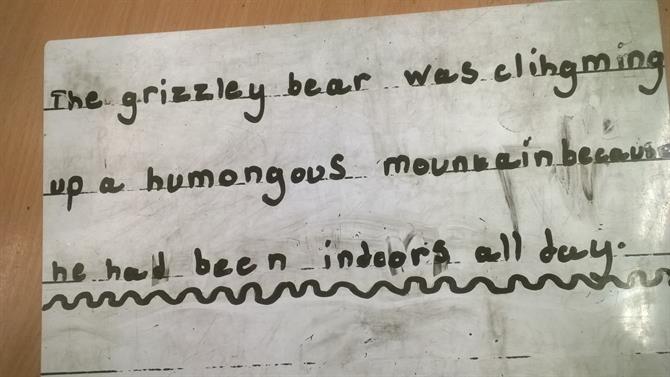 The grizzley bear was clihgming
up a humongous mountain because
he had been indoors all day.